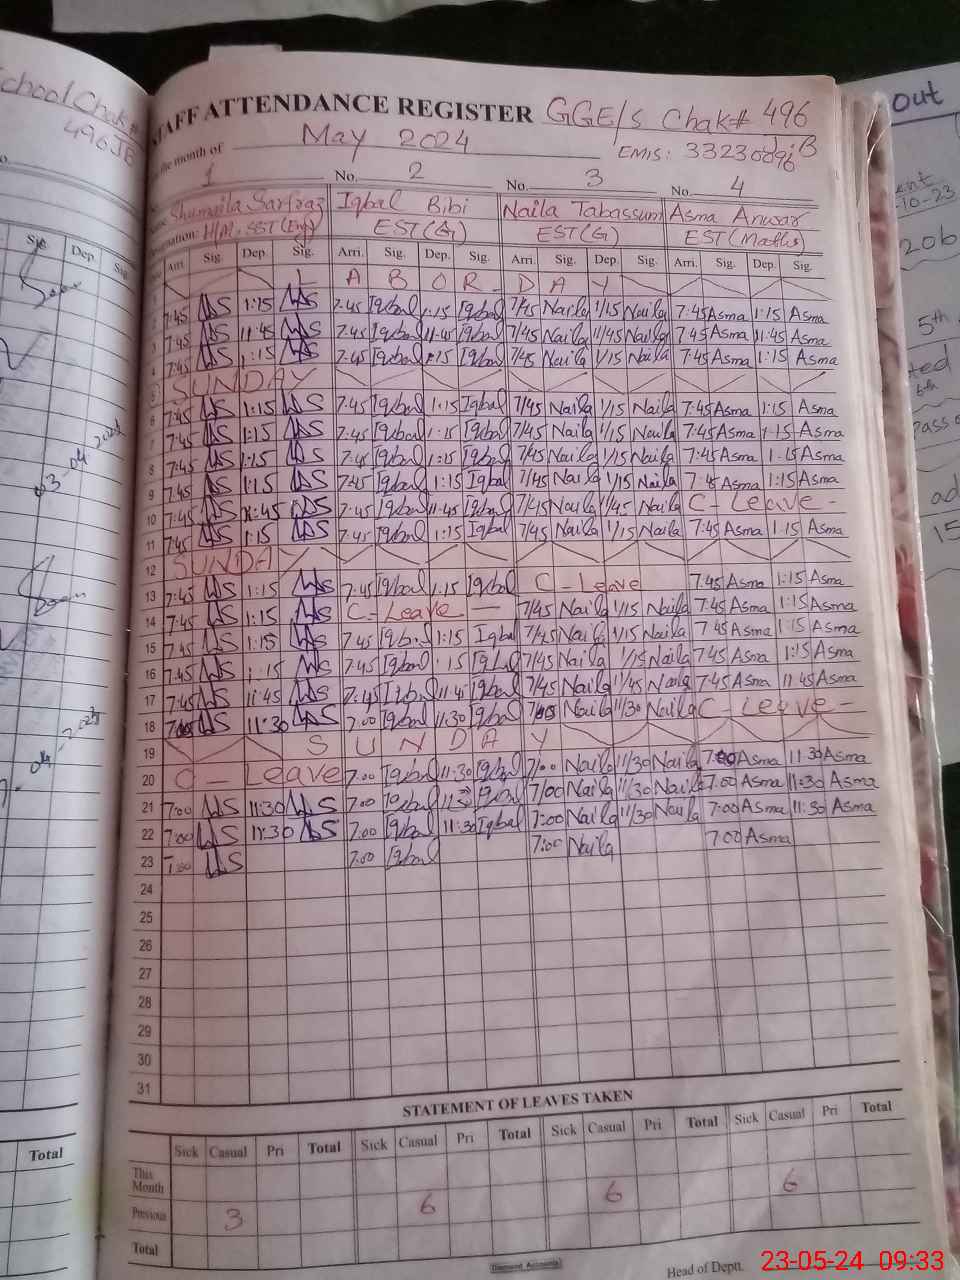 School Chak#
496JB
Sig.
Dep.
Sig.
03-04-2024
Total
STAFF ATTENDANCE REGISTER GGE/s Chak# 496 J.B
the month of May 2024 EMIS: 33230096
1 No. 2 No. 3 No. 4
Shumaila Sarfraz Iqbal Bibi Naila Tabassum Asma Anwar
H/M, SST(Eng) EST(G) EST(G) EST(Maths)
Arr. Sig. Dep. Sig. Arri. Sig. Dep. Sig. Arri. Sig. Dep. Sig. Arri. Sig. Dep. Sig.
1 L A B O R - D A Y
7:45 1:15 7:45 Iqbal 1:15 Iqbal 7/45 Naila 1/15 Naila 7:45 Asma 1:15 Asma
7:45 11:45 7:45 Iqbal 11:45 Iqbal 7/45 Naila 11/45 Naila 7:45 Asma 11:45 Asma
4 7:45 1:15 7:45 Iqbal 1:15 Iqbal 7/45 Naila 1/15 Naila 7:45 Asma 1:15 Asma
5 SUNDAY
6 7:45 1:15 7:45 Iqbal 1:15 Iqbal 7/45 Naila 1/15 Naila 7:45 Asma 1:15 Asma
7 7:45 1:15 7:45 Iqbal 1:15 Iqbal 7/45 Naila 1/15 Naila 7:45 Asma 1:15 Asma
8 7:45 1:15 7:45 Iqbal 1:15 Iqbal 7/45 Naila 1/15 Naila 7:45 Asma 1:15 Asma
9 7:45 1:15 7:45 Iqbal 1:15 Iqbal 7/45 Naila 1/15 Naila 7:45 Asma 1:15 Asma
10 7:45 11:45 7:45 Iqbal 11:45 Iqbal 7/45 Naila 11/45 Naila C - Leave -
11 7:45 1:15 7:45 Iqbal 1:15 Iqbal 7/45 Naila 1/15 Naila 7:45 Asma 1:15 Asma
12 SUNDAY
13 7:45 1:15 7:45 Iqbal 1:15 Iqbal C - Leave 7:45 Asma 1:15 Asma
14 7:45 1:15 C - Leave - 7/45 Naila 1/15 Naila 7:45 Asma 1:15 Asma
15 7:45 1:15 7:45 Iqbal 1:15 Iqbal 7/45 Naila 1/15 Naila 7:45 Asma 1:15 Asma
16 7:45 1:15 7:45 Iqbal 1:15 Iqbal 7/45 Naila 1/15 Naila 7:45 Asma 1:15 Asma
17 7:45 11:45 7:45 Iqbal 11:45 Iqbal 7/45 Naila 11/45 Naila 7:45 Asma 11:45 Asma
18 11:30 7:00 Iqbal 11:30 Iqbal Naila 11/30 Naila C - Leave -
19 S U N D A Y
20 C - Leave 7:00 Iqbal 11:30 Iqbal 7/00 Naila 11/30 Naila 7:00 Asma 11:30 Asma
21 7:00 11:30 7:00 Iqbal 11:30 Iqbal 7/00 Naila 11/30 Naila 7:00 Asma 11:30 Asma
22 7:00 11:30 7:00 Iqbal 11:30 Iqbal 7:00 Naila 11/30 Naila 7:00 Asma 11:30 Asma
23 7:00 7:00 Iqbal 7:00 Naila 7:00 Asma
24
25
26
27
28
29
30
31
STATEMENT OF LEAVES TAKEN
Sick Casual Pri Total Sick Casual Pri Total Sick Casual Pri Total Sick Casual Pri Total
This Month
Previous 3 6 6 6
Total
Diamond Accounts
Head of Deptt.
out
10-23
206
5th
15
23-05-24 09:33